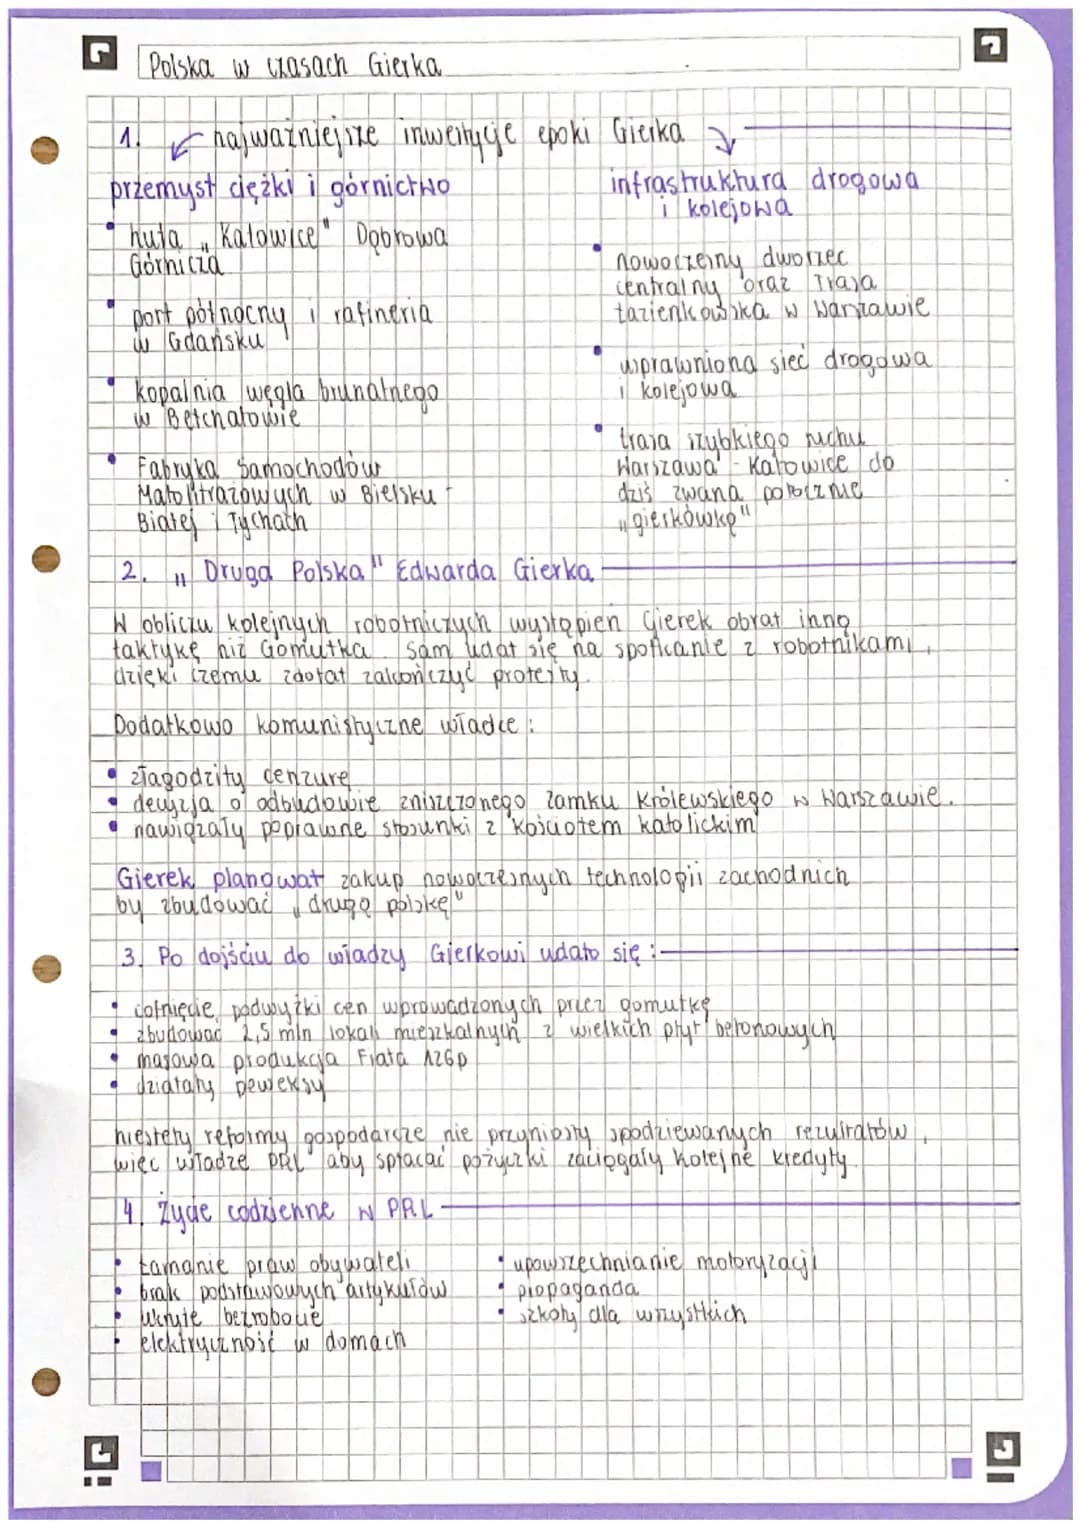 Polska w czasach Gierka
1. najważniejsze inwestycje epoki Gierka
przemysł ciężki i górnictwo
• huta „Katowice" Dąbrowa
Górnicza
• port północny i rafineria
w Gdańsku
• kopalnia węgla brunatnego
w Bełchatowie
• Fabryka Samochodów
Małolitrażowych w Bielsku -
Białej i Tychach
infrastruktura drogowa
i kolejowa
• nowoczesny dworzec
centralny oraz Trasa
łazienkowska w Warszawie
• uprawniona sieć drogowa
i kolejowa
• trasa szybkiego ruchu
Warszawa - Katowice do
dziś zwana potocznie
„gierkówką"
2. „Druga Polska" Edwarda Gierka
W obliczu kolejnych robotniczych wystąpień Gierek obrał inną
taktykę niż Gomułka. Sam udał się na spotkanie z robotnikami,
dzięki czemu zdołał zakończyć protesty.
Dodatkowo komunistyczne władze:
• złagodziły cenzurę
• decyzja o odbudowie zniszczonego zamku Królewskiego w Warszawie.
• nawiązały poprawne stosunki z kościołem katolickim
Gierek planował zakup nowoczesnych technologii zachodnich
by zbudować „drugą polskę"
3. Po dojściu do władzy Gierkowi udało się:
• cofnięcie podwyżki cen wprowadzonych przez gomułkę
• zbudować 2,5 mln lokali mieszkalnych z wielkich płyt betonowych
• masowa produkcja Fiata 126p
• działały peweksy
niestety reformy gospodarcze nie przyniosły spodziewanych rezultatów,
więc władze PRL aby spłacać pożyczki zaciągały kolejne kredyty.
4. Życie codzienne w PRL
• łamanie praw obywateli
• brak podstawowych artykułów
• ukryte bezrobocie
• elektryczność w domach
• upowszechnianie motoryzacji
• propaganda
• szkoły dla wszystkich